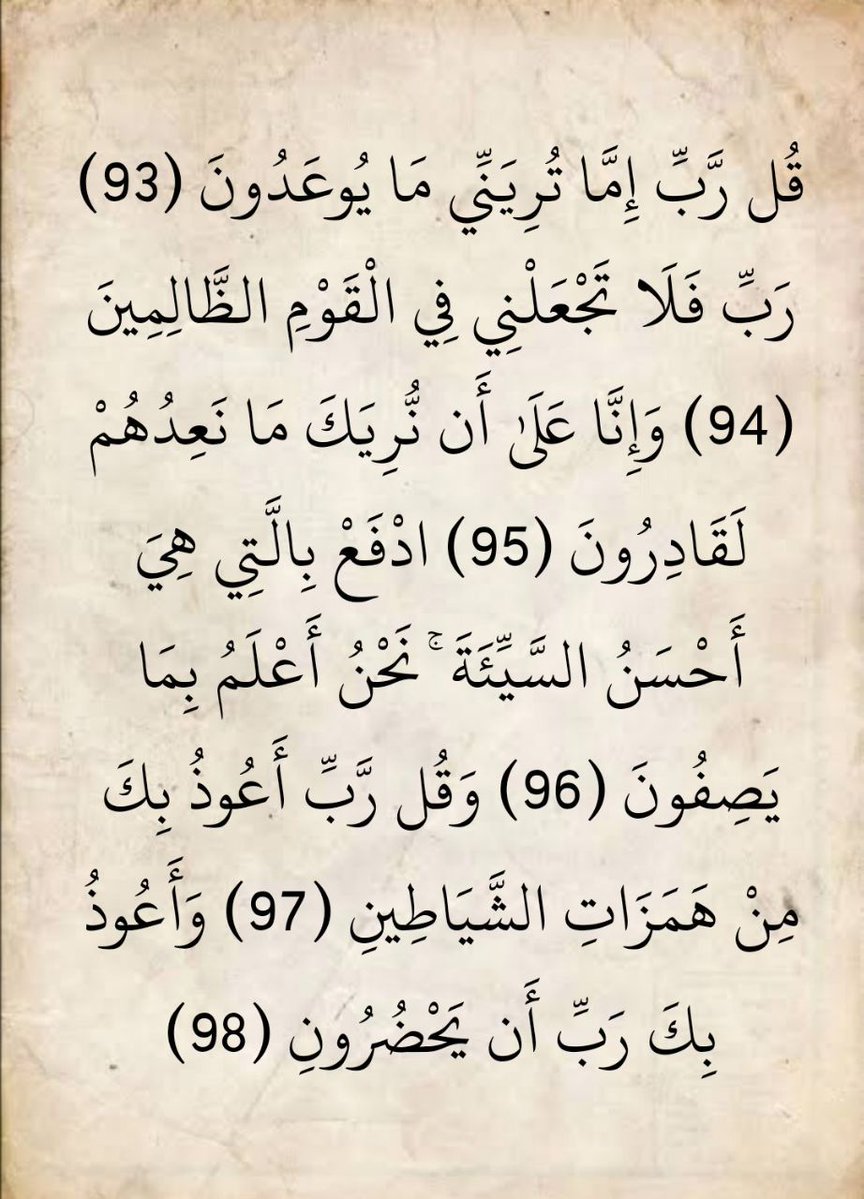 قُل رَّبِّ إِمَّا تُرِيَنِّي مَا يُوعَدُونَ (93)
رَبِّ فَلَا تَجْعَلْنِي فِي الْقَوْمِ الظَّالِمِينَ
(94) وَإِنَّا عَلَىٰ أَن نُّرِيَكَ مَا نَعِدُهُمْ
لَقَادِرُونَ (95) ادْفَعْ بِالَّتِي هِيَ
أَحْسَنُ السَّيِّئَةَ ۚ نَحْنُ أَعْلَمُ بِمَا
يَصِفُونَ (96) وَقُل رَّبِّ أَعُوذُ بِكَ
مِنْ هَمَزَاتِ الشَّيَاطِينِ (97) وَأَعُوذُ
بِكَ رَبِّ أَن يَحْضُرُونِ (98)